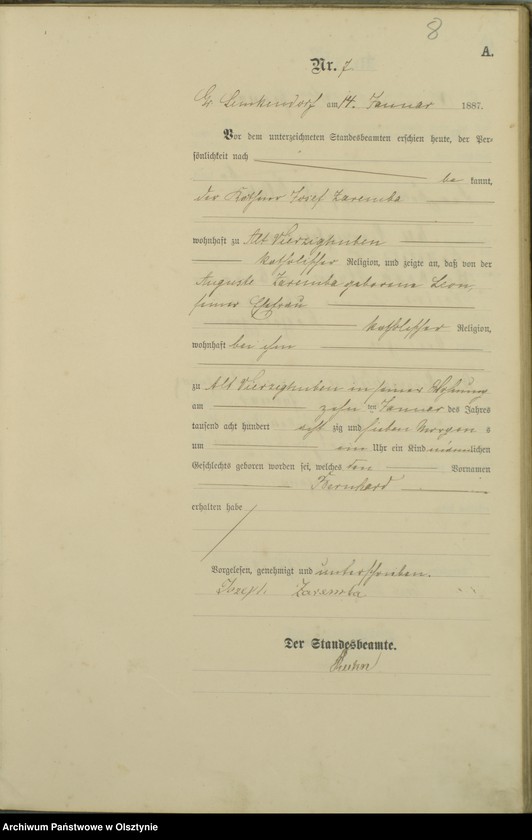 8
A.
Nr. 7
Gr Lemkendorf am 14. Januar 1887.
Vor dem unterzeichneten Standesbeamten erschien heute, der Per-
sönlichkeit nach
be kannt,
der Käthner Josef Zaremba
wohnhaft zu Alt Vierzighuben
katholischer Religion, und zeigte an, daß von der
Auguste Zaremba geborene
seiner Ehefrau
katholischer Religion,
wohnhaft bei ihm
zu Alt Vierzighuben in seiner Wohnung
am zehn ten Januar des Jahres
tausend acht hundert acht zig und sieben Morgen s
um ein Uhr ein Kind männlichen
Geschlechts geboren worden sei, welches den Vornamen
Bernhard
erhalten habe
Vorgelesen, genehmigt und unterschrieben.
Jozef Zaremba
Der Standesbeamte.
Archiwum Państwowe w Olsztynie